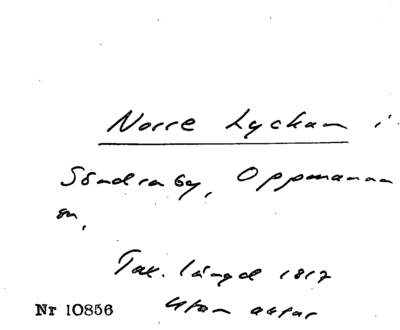 Norre Lyckan i
Söndraby, Oppmanna
sn,
Tax. längd 1817
Nr 10856 utan avtar